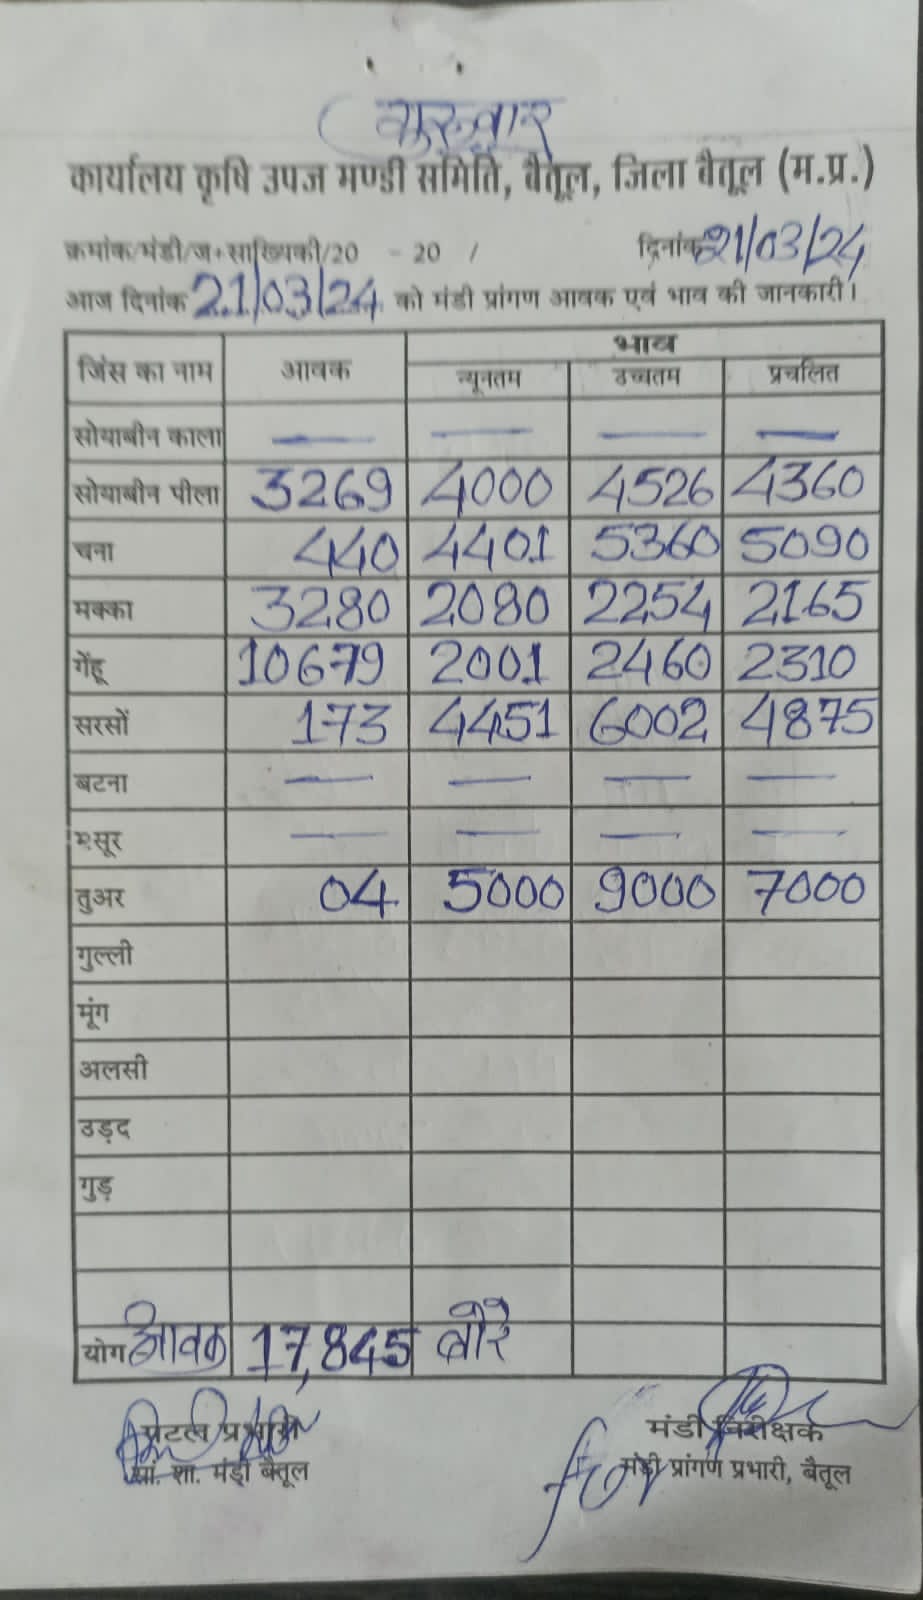 गुरुवार
कार्यालय कृषि उपज मण्डी समिति, बैतूल, जिला बैतूल (म.प्र.)
क्रमांक/मंडी/ज+साख्यिकी/20 - 20 / दिनांक 21/03/24
आज दिनांक 21/03/24 को मंडी प्रांगण आवक एवं भाव की जानकारी।
जिंस का नाम आवक भाव
न्यूनतम उच्चतम प्रचलित
सोयाबीन काला — — — —
सोयाबीन पीला 3269 4000 4526 4360
चना 440 4401 5360 5090
मक्का 3280 2080 2254 2165
गेंहू 10679 2001 2460 2310
सरसों 173 4451 6002 4875
बटना — — — —
मसूर — — — —
तुअर 04 5000 9000 7000
गुल्ली
मूंग
अलसी
उड़द
गुड़
योग आवक 17,845 बोरे
पटल प्रभारी मंडी निरीक्षक
प्रां. शा. मंडी बैतूल मंडी प्रांगण प्रभारी, बैतूल